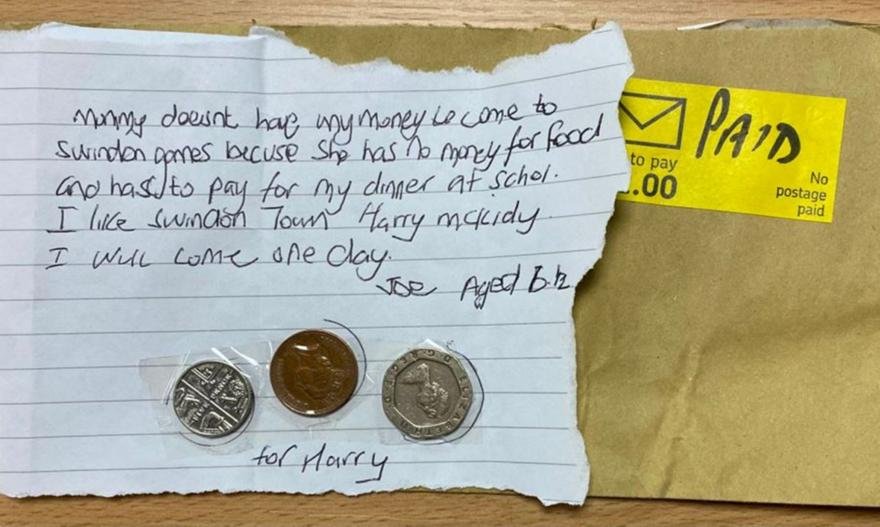 Mummy doesnt have any money to come to
Swindon games becuse She has no money for Food
and hass to pay for my dinner at schol.
I like swindon Town Harry mckidy.
I will come one day.
Joe Aged 6½
for Harry
PAID
to pay
.00
No
postage
paid